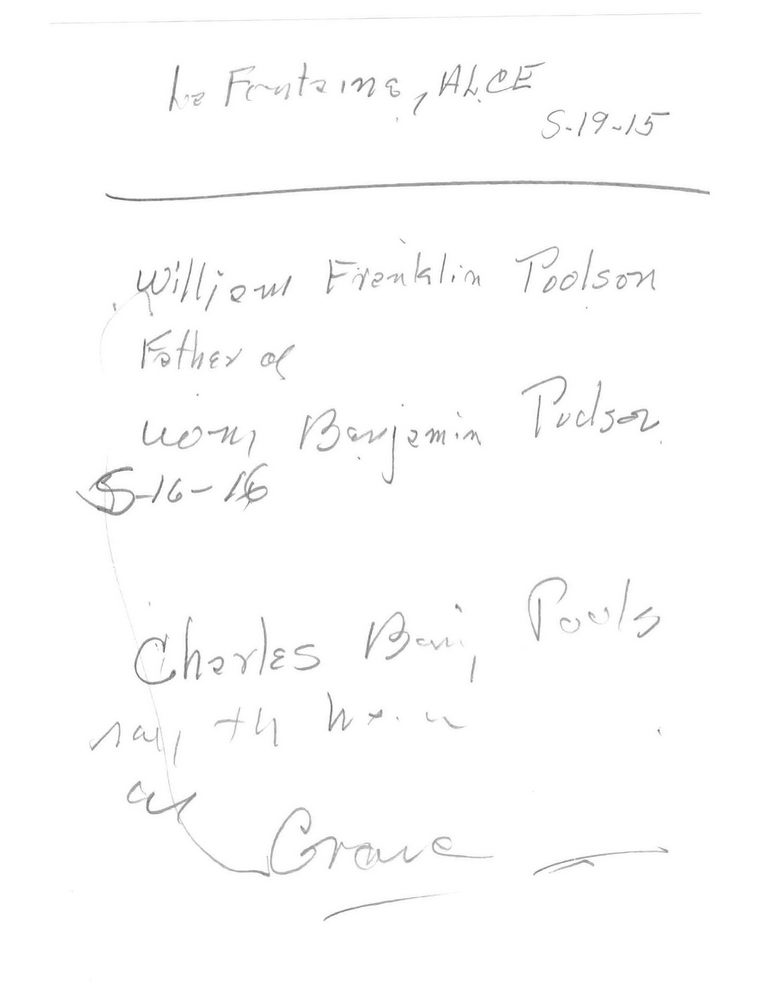 La Fontaine, ALCE
5-19-15
William Franklin Poolson
Father of
Benjamin Poolson
5-16-16
Charles Benj Pools
Grave